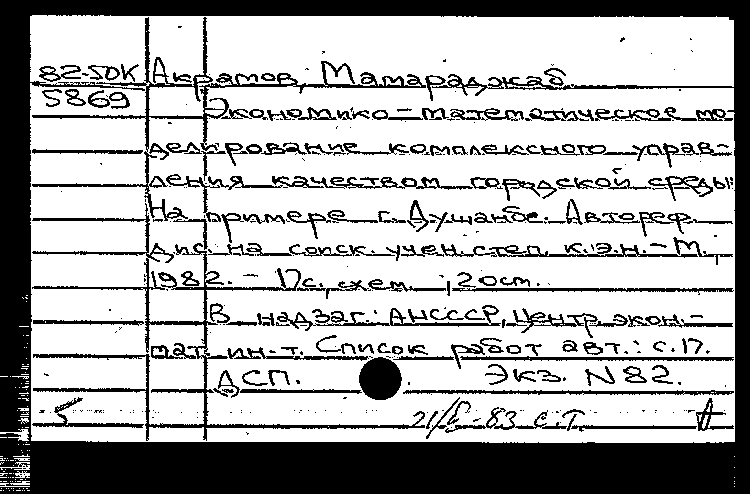 82-50К Акрамов, Мамараджаб.
5869 Экономико-математическое мо-
делирование комплексного управ-
ления качеством городской среды:
На примере г. Душанбе. Автореф.
дис. на соиск. учен. степ. к.э.н. - М.,
1982. - 17с., схем. ; 20см.
В надзаг.: АНСССР, Центр. экон.-
мат. ин-т. Список работ авт.: с.17.
ДСП. Экз. N 82.
21/ -83 С.Т.